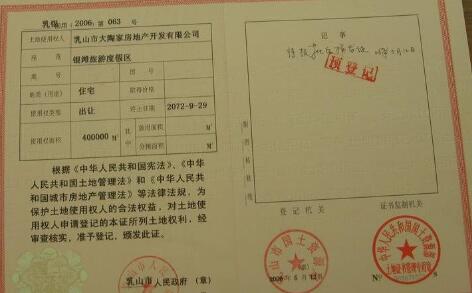 乳 国用（2006）第 063 号
土地使用权人 乳山市大陶家房地产开发有限公司
座落 银滩旅游度假区
地号 图号
地类（用途） 住宅 取得价格
使用权类型 出让 终止日期 2072-9-29
使用权面积 400000 M² 其中 独用面积 M²
分摊面积 M²
根据《中华人民共和国宪法》、《中华
人民共和国土地管理法》和《中华人民共
和国城市房地产管理法》等法律法规，为
保护土地使用权人的合法权益，对土地使
用权人申请登记的本证所列土地权利，经
审查核实，准予登记，颁发此证。
乳山市人民政府（章）
记事
预登记
登记机关
证书监制机关
山市国土资源
中华人民共和国国土资源部
土地证书管理专用章
2006